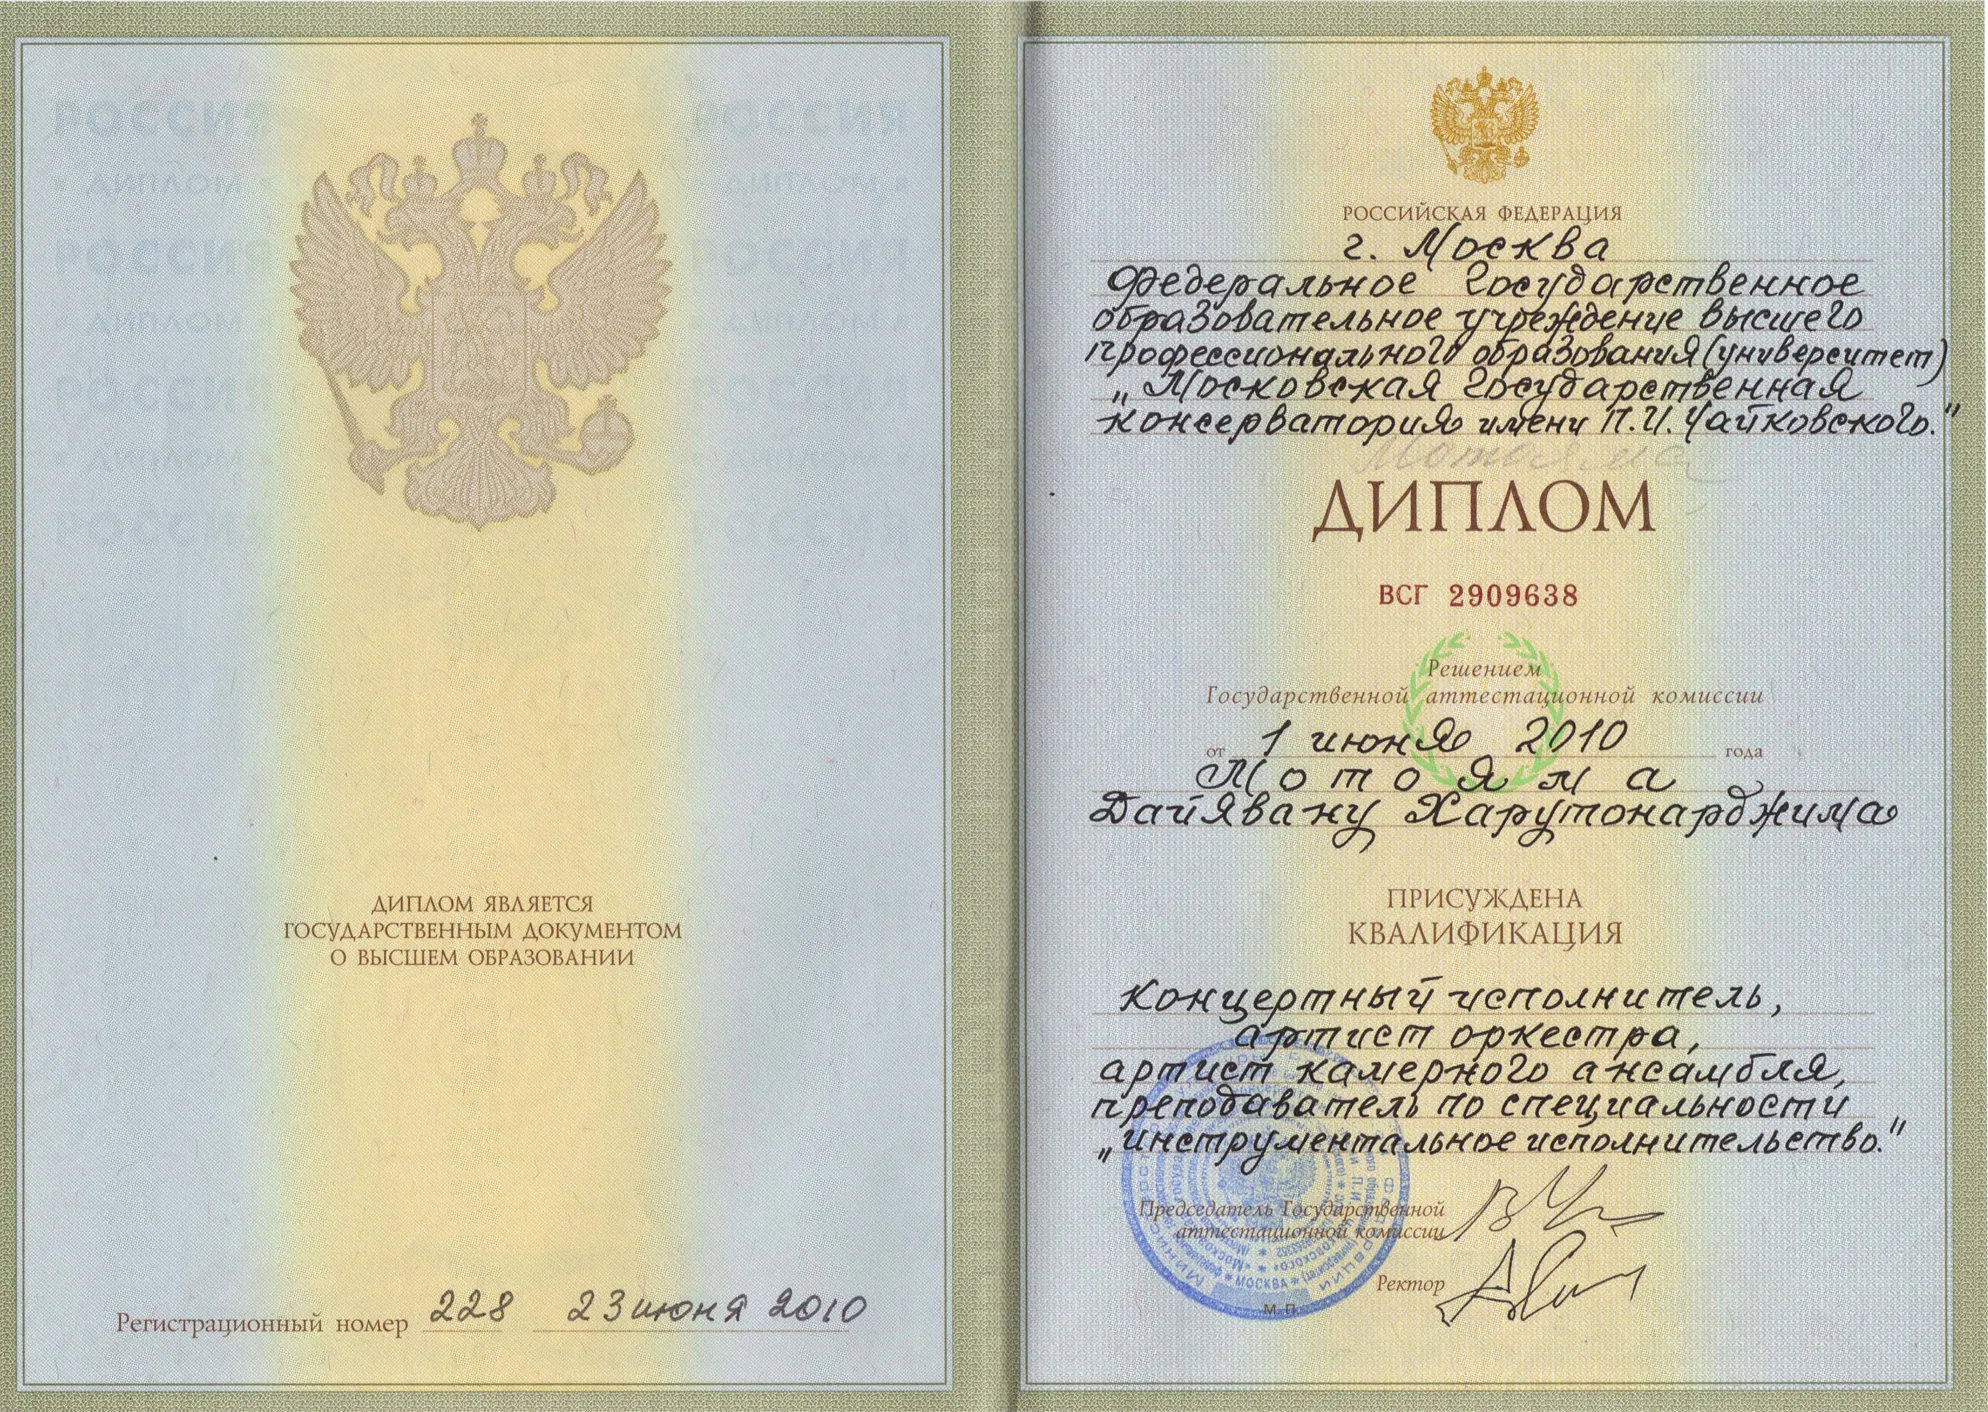 РОССИЯ РОССИЯ
ДИПЛОМ ДИПЛОМ
РОССИЯ РОССИЯ
ДИПЛОМ ДИПЛОМ
РОССИЯ РОССИЯ
ДИПЛОМ ДИПЛОМ
РОССИЯ РОССИЯ
ДИПЛОМ ЯВЛЯЕТСЯ
ГОСУДАРСТВЕННЫМ ДОКУМЕНТОМ
О ВЫСШЕМ ОБРАЗОВАНИИ
Регистрационный номер 228 23 июня 2010
РОССИЙСКАЯ ФЕДЕРАЦИЯ
г. Москва
Федеральное государственное
образовательное учреждение высшего
профессионального образования (университет)
„Московская государственная
консерватория имени П.И. Чайковского."
Мотояма
ДИПЛОМ
ВСГ 2909638
Решением
Государственной аттестационной комиссии
от 1 июня 2010 года
Мотояма
Дайявану Харутонарджима
ПРИСУЖДЕНА
КВАЛИФИКАЦИЯ
Концертный исполнитель,
артист оркестра,
артист камерного ансамбля,
преподаватель по специальности
„инструментальное исполнительство."
Председатель Государственной
аттестационной комиссии
Ректор
МОСКВА
М.П.